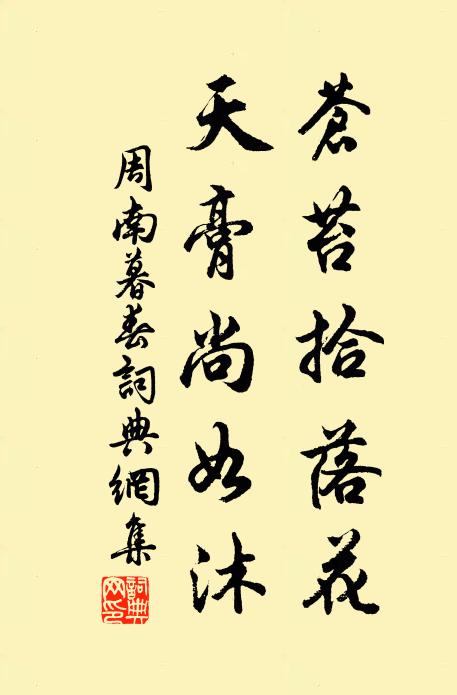 蒼苔拾落花
天膏尚如沐
周南暮春詞典網集
詞典网印